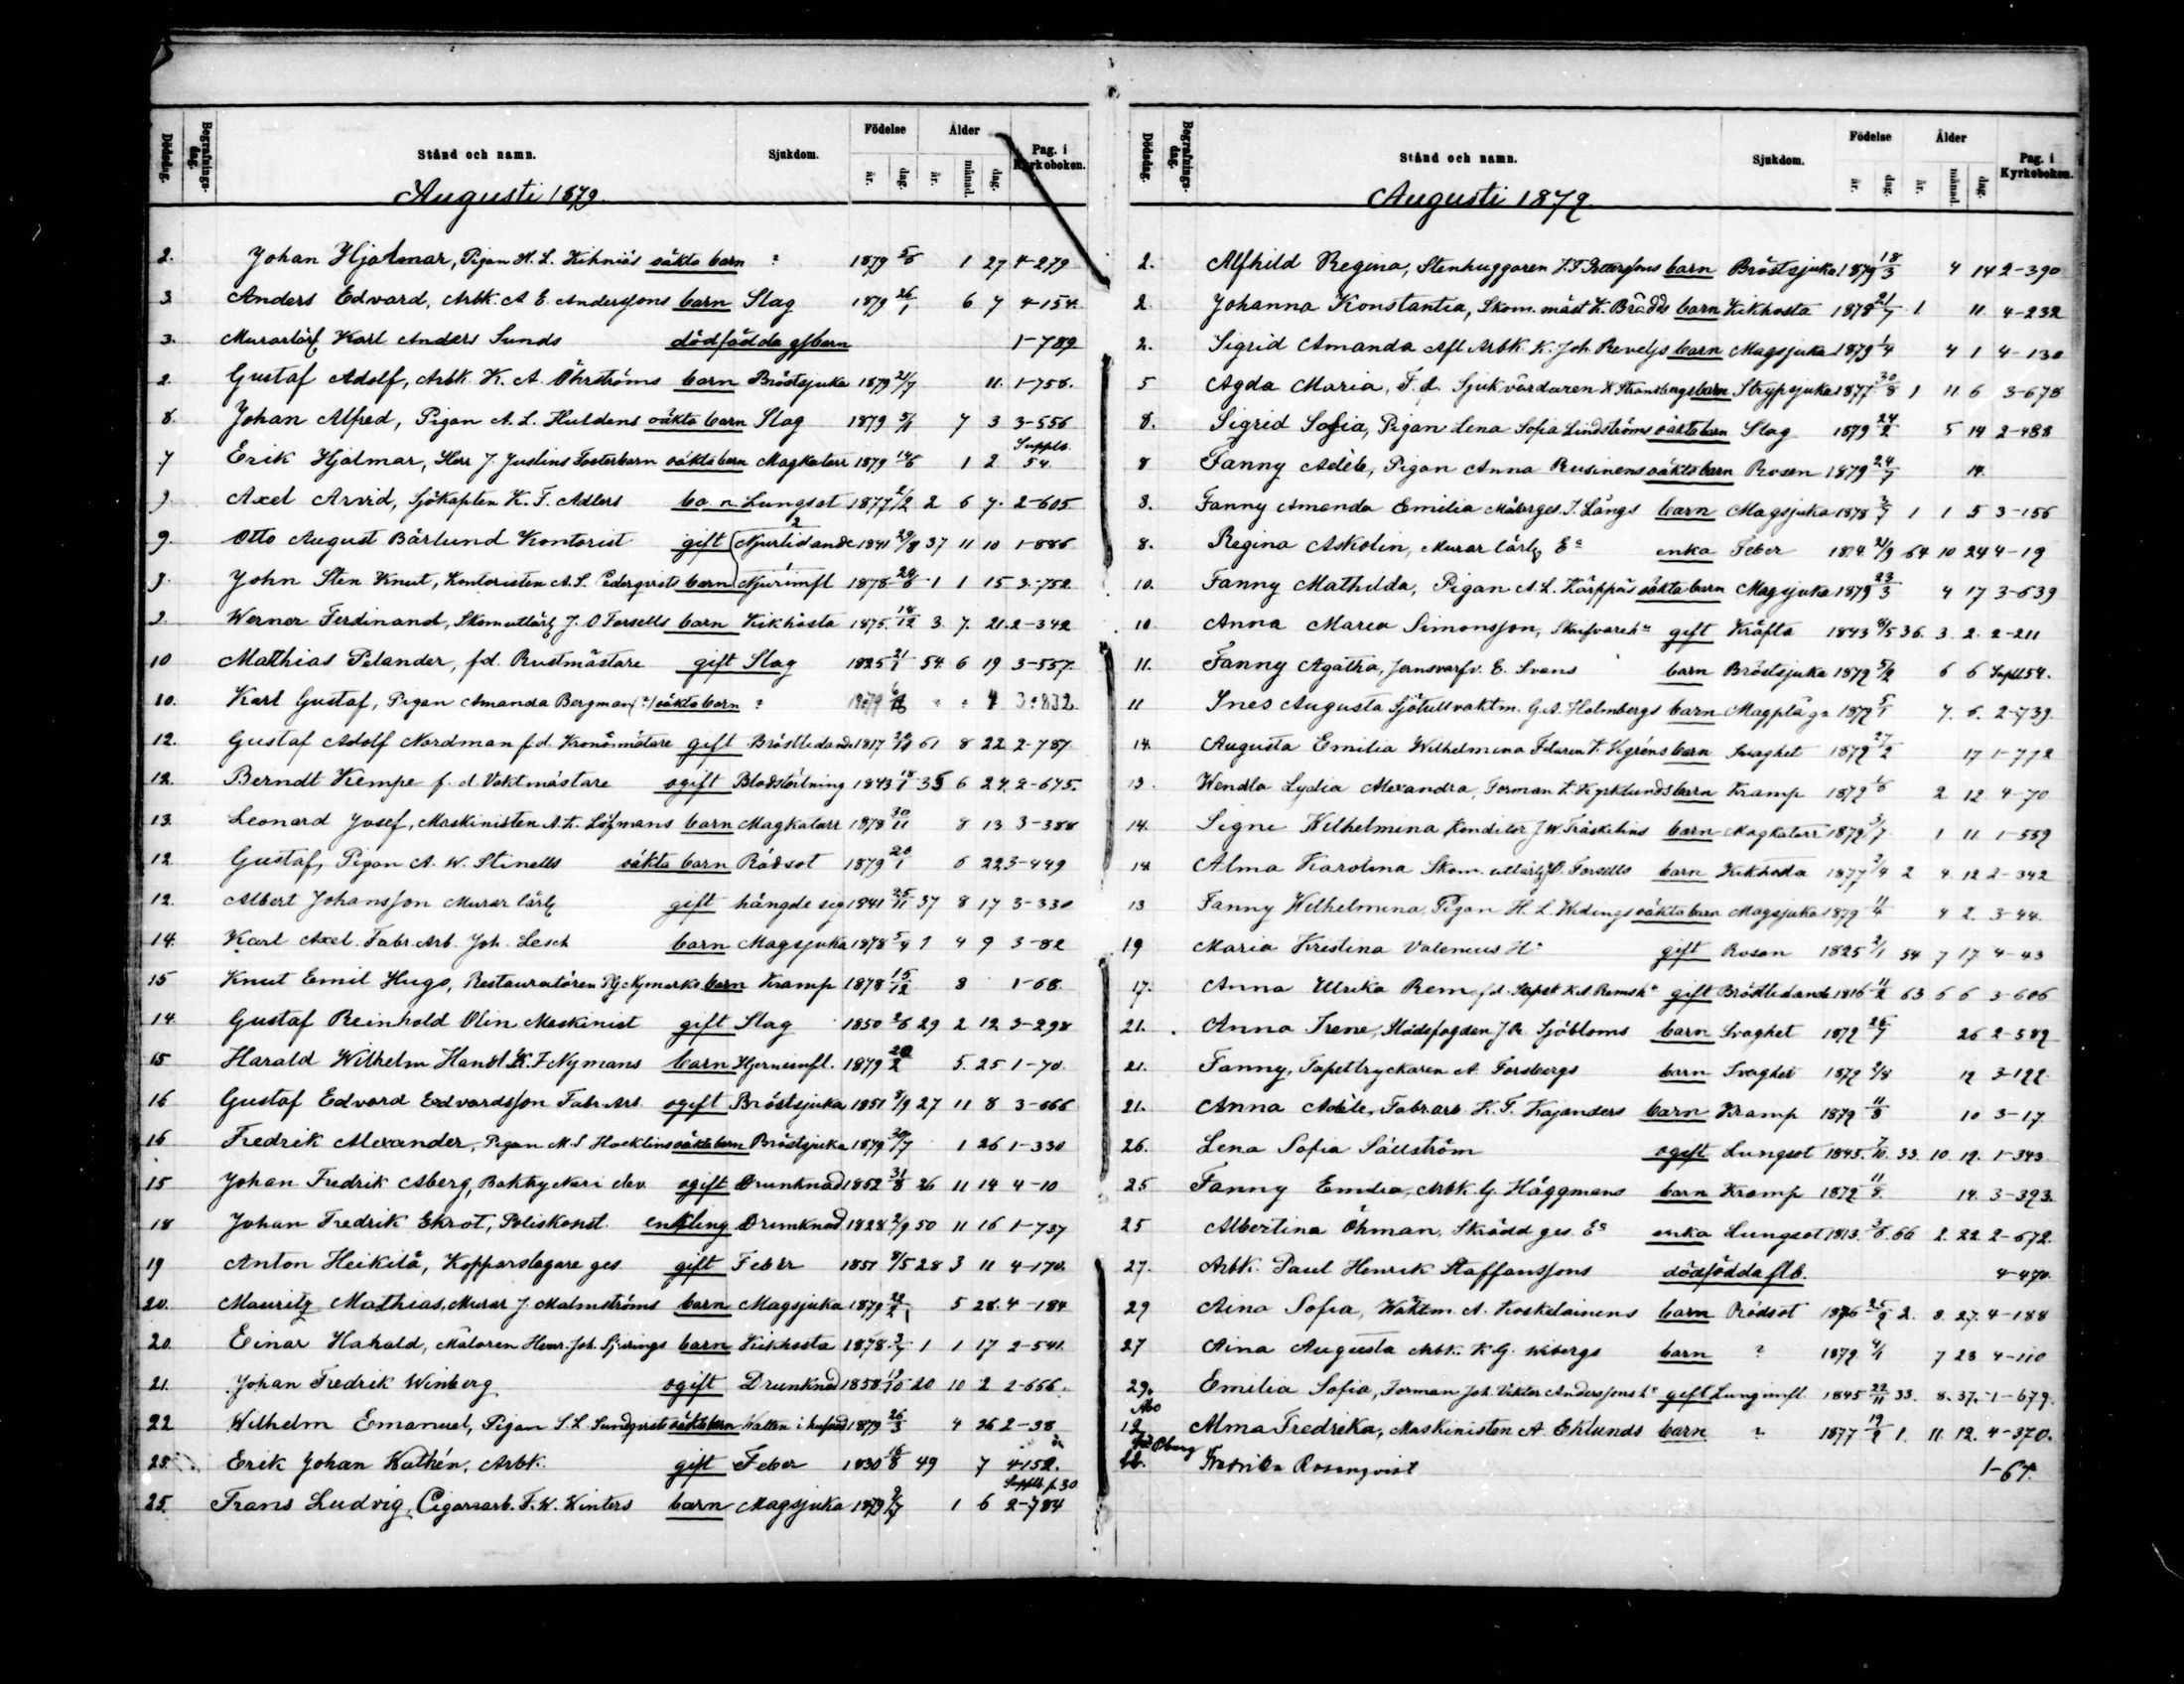 Dödsdag. Begrafnings-dag. Stånd och namn. Sjukdom. Födelse år. dag. Ålder år. månad. dag. Pag. i Kyrkoboken.
Augusti 1879.
2. Johan Hjalmar, Pigan H. L. Kihniäs oäkta barn ? 1879 5/6 1 27 4-279
3 Anders Edvard, Arbk. A E. Anderssons barn Slag 1879 26/1 6 7 4-154.
3. Murarlärl Karl Anders Sunds dödfödda gsbarn 1-789
2. Gustaf Adolf, Arbk K. A. Öhrströms barn Bröstsjuka 1879 21/7 11. 1-758.
8. Johan Alfred, Pigan A. L. Huldens oäkta barn Slag 1879 5/1 7 3 3-556
7 Erik Hjalmar, Herr J. Juslins Fosterbarn oäkta barn Magkatarr 1879 14/6 1 2 Supplb. 54.
9. Axel Arvid, Sjökapten K. F. Adlers barn Lungsot 1877 2/2 2 6 7. 2-605
9. Otto August Bärlund Kontorist gift Njurlidande 1841 29/8 37 11 10 1-886
9. John Sten Knut, Kontoristen A. S. Cederqvists barn 2 Njurinfl 1878 24/6 1 1 15 3-752
9. Werner Ferdinand, Skomutlärl J. O Forsells barn Kikhosta 1875. 18/12 3. 7. 21. 2-342
10 Mathias Pelander, fd. Rustmästare gift Slag 1825 21/1 54. 6 19 3-557.
10. Karl Gustaf, Pigan Amanda Bergman (?) oäkta barn ? 1879 6/8 " " 4 3-832
12. Gustaf Adolf Nordman f.d. Kronómätare gift Bröstlidande 1817 61 8 22 2-787.
12. Berndt Kempe f. d. Vaktmästare ogift Blodstörtning 1843 18/1 35 6 24. 2-675.
13. Leonard Josef, Maskinisten A. K. Löfmans barn Magkatarr 1878 30/11 8 13 3-388
12 Gustaf, Pigan A. W. Stinells oäkta barn Rödsot 1879 20/1 6 22 3-449
12. Albert Johansson Murar lärl gift hängde sig 1841 25/11 37 8 17 3-330
14. Karl Axel Fabr. Arb. Joh. Lesch barn Magsjuka 1878 5/4 1 4 9 3-82
15 Knut Emil Hugo, Restauratören Nymarks barn Kramp 1878 15/12 8 1-68.
14 Gustaf Reinhold Olin Maskinist gift Slag 1850 2/6 29 2 12 3-298
15 Harald Wilhelm Handl. K. F. Nymans barn Hjerninfl. 1879 20/2 5. 25 1-70.
16 Gustaf Edvard Edvardsson Fabr. Arb. ogift Bröstsjuka 1851 8/9 27 11 8 3-666
16 Fredrik Alexander, Pigan M. S. Hacklins oäkta barn Bröstsjuka 1879 1 26 1-330
15 Johan Fredrik Åberg, Boktryckeri elev ogift Drunknad 1852 31/8 26 11 14 4-10
18 Johan Fredrik Ekrot, Poliskonst. enkling Drunknad 1828 2/9 50 11 16 1-737
19 Anton Heikilä, Kopparslagare ges. gift Feber 1851 8/5 28 3 11 4-170.
20. Mauritz Mathias, Murar J. Malmströms barn Magsjuka 1879 5 28. 4-184
20. Einar Harald, Målaren Henr. Joh. barn Kikhosta 1878 3/7 1 1 17 2-541.
21. Johan Fredrik Winberg ogift Drunknad 1858 19/10 20 10 2 2-666.
22 Wilhelm Emanuel, Pigan S. L. Sundqvists oäkta barn Vatten i hufvud 1879 26/3 4 26 2-38
25. Erik Johan Kathén, Arbk. gift Feber 1830 18/8 49 7 4-152.
25. Frans Ludvig, Cigarrarb. F. W. Winters barn Magsjuka 1879 1 6 Supplb. p. 30 2-784
Dödsdag. Begrafnings-dag. Stånd och namn. Sjukdom. Födelse år. dag. Ålder år. månad. dag. Pag. i Kyrkoboken.
Augusti 1879.
2. Alfhild Regina, Stenhuggaren barn Bröstsjuka 1879 18/3 4 14 2-390
2. Johanna Konstantia, Skom. mäst K. Brädds barn Kikhosta 1878 21/7 1 11. 4-232
2. Sigrid Amanda Afl. Arbk. K. Joh. Revells barn Magsjuka 1879 1/4 4 1 4-130
5 Agda Maria, F. d. Sjukvårdaren K Stransbergs barn Strypsjuka 1877 30/8 1 11. 6 3-678
8. Sigrid Sofia, Pigan Lena Sofia Lindströms oäkta barn Slag 1879 24/2 5 14 2-488
8 Fanny Adèle, Pigan Anna Rusinens oäkta barn Rosen 1879 24/7 14.
8. Fanny Amanda Emilia Målarges. J. Långs barn Magsjuka 1878 3/7 1 1 5 3-156
8. Regina Askolin, Murar lärlg Ea enka Feber 1814. 21/9 64 10 24 4-19
10. Fanny Mathilda, Pigan A. L. Kärppäs oäkta barn Magsjuka 1879 23/3 4 17 3-639
10. Anna Maria Simonsson, gift Kräfta 1843 8/5 36. 3. 2. 2-211
11. Fanny Agatha, Jernsvarfv. E. Svans barn Bröstsjuka 1879 5/2 6 6 Suppl 54.
11 Ines Augusta Sjötullvaktm. G. A. Holmbergs barn Magplåga 1879 5/1 7. 6. 2-739.
14. Augusta Emilia Wilhelmina barn Svaghet 1879 27/2 17 1-772
13. Wendla Lydia Alexandra, Forman K. Kyrklunds barn Kramp 1879 1/6 2 12 4-70
14. Signe Wilhelmina Konditor J. W. Fräskelins barn Magkatarr 1879 3/7 1 11 1-559
14 Alma Karolina Skom. utlärl J. O. Forsells barn Kikhosta 1877 2/4 2 4. 12 2-342
13 Fanny Wilhelmina, Pigan H. L. Widings oäkta barn Magsjuka 1879 11/4 4 2. 3-44.
19 Maria Kristina Valenius Ha gift Rosen 1825 2/1 54 7 17 4-43
17. Anna Ulrika Rem f.d. gift Bröstlidande 1816 11/2 63 6 6 3-606
21. Anna Irene, Stadsfogden J. R. Sjöbloms barn Svaghet 1879 26/7 26 2-589
21. Fanny, Tapettryckaren A. Forsbergs barn Svaghet 1879 2/8 19 3-122
21. Anna Adèle, Fabrarb. K. F. Kajanders barn Kramp 1879 11/8 10 3-17.
26. Lena Sofia Sällström ogift Lungsot 1845. 7/10 33. 10. 19. 1-343
25 Fanny Emilia, Arbk. G. Häggmans barn Kramp 1879 11/8. 14. 3-393.
25 Albertina Öhman, Skrädd ges. Ea enka Lungsot 1813. 3/6. 66 2. 22. 2-672.
27. Arbk. Paul Henrik Staffanssons dödfödda flb. 4-470.
29 Aina Sofia, Waktm. A. Koskelainens barn Rödsot 1876 25/9 2. 8. 27. 4-188
27 Aina Augusta Arbk. K. G. Wibergs barn ? 1879 4/1 7 23 4-110
29. Emilia Sofia, Forman Joh. Viktor Anderssons ha gift Lunginfl 1845 22/11 33. 8. 37. 1-679.
Åbo
12 Alma Fredrika, Maskinisten A. Eklunds barn ? 1877 19/9 1. 11. 12. 4-370.
Fredrika Rosenqvist 1-67.